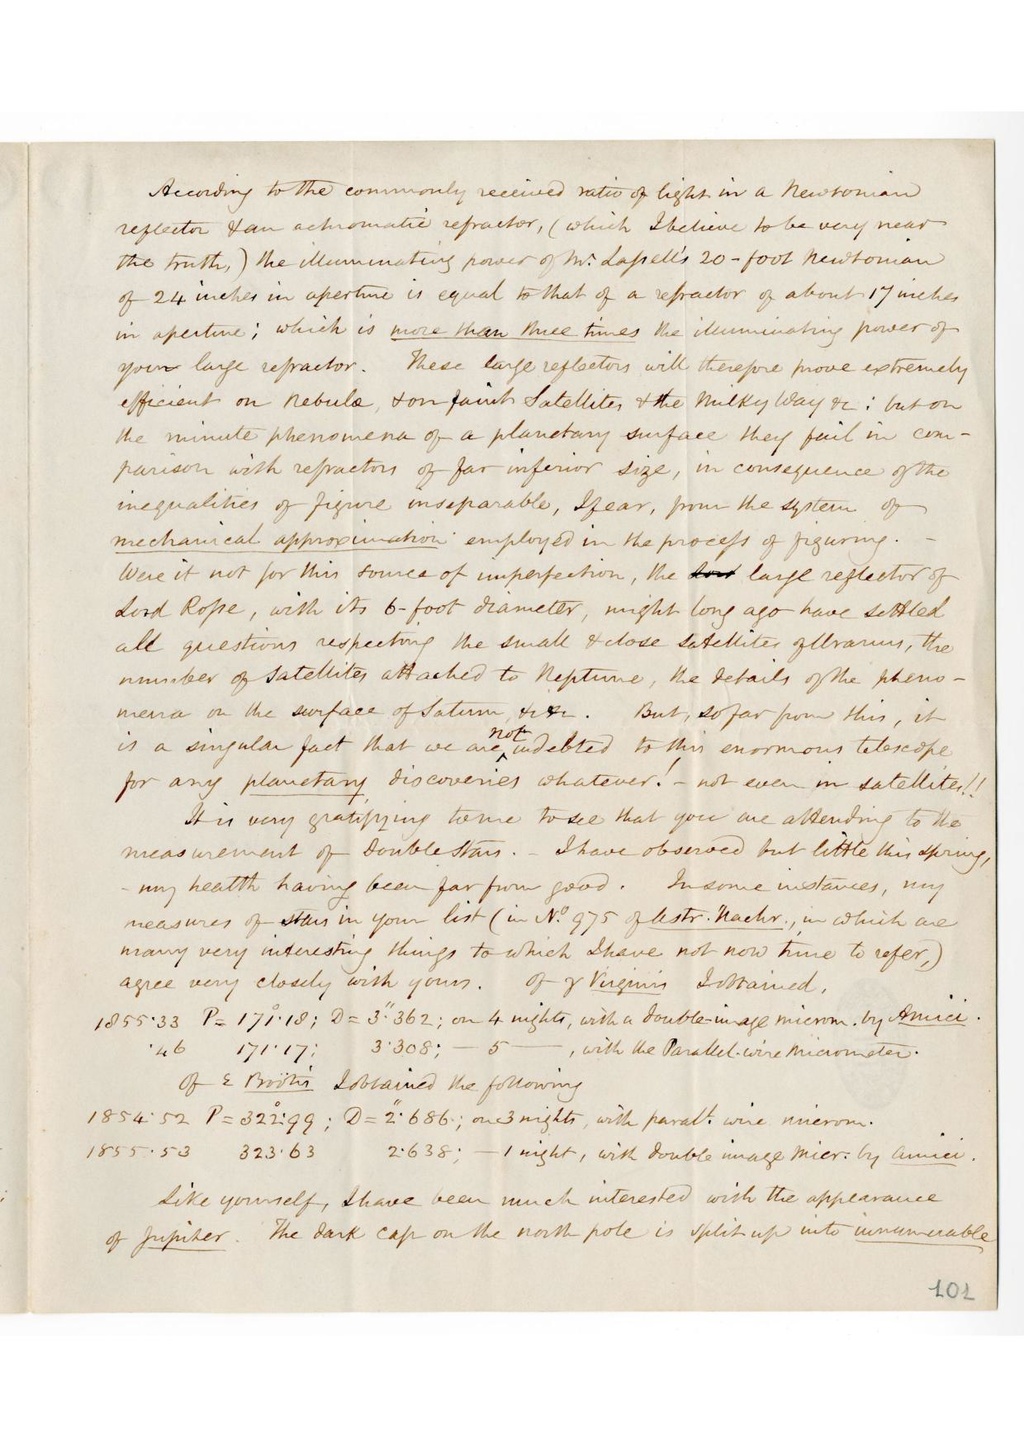 According to the commonly received ratio of light in a Newtonian
reflector & an achromatic refractor, (which I believe to be very near
the truth,) the illuminating power of Mr. Lassell's 20-foot Newtonian
of 24 inches in aperture is equal to that of a refractor of about 17 inches
in aperture; which is more than three times the illuminating power of
your large refractor. These large reflectors will therefore prove extremely
efficient on Nebulæ, & on faint Satellites & the Milky Way &c: but on
the minute phenomena of a planetary surface they fail in com-
parison with refractors of far inferior size, in consequence of the
inequalities of figure inseparable, I fear, from the system of
mechanical approximation employed in the process of figuring. -
Were it not for this source of imperfection, the Lord large reflector of
Lord Rosse, with its 6-foot diameter, might long ago have settled
all questions respecting the small & close satellites of Uranus, the
number of Satellites attached to Neptune, the details of the pheno-
mena on the surface of Saturn, &c&c. But, so far from this, it
is a singular fact that we are not indebted to this enormous telescope
for any planetary discoveries whatever! - not even in satellites!!
It is very gratifying to me to see that you are attending to the
measurement of Double Stars. - I have observed but little this spring,
- my health having been far from good. In some instances, my
measures of stars in your list (in No. 975 of Astr. Nachr., in which are
many very interesting things to which I have not now time to refer,)
agree very closely with yours. Of γ Virginis I obtained,
1855·33 P = 171°·18; D = 3"·362; on 4 nights, with a double-image microm. by Amici.
·46 171·17; 3·308; — 5 —, with the Parallel-wire Micrometer.
Of ε Boötis I obtained the following
1854·52 P = 322°·99; D = 2"·686; on 3 nights, with parall. wire microm.
1855·53 323·63 2·638; — 1 night, with double image micr. by Amici.
Like yourself, I have been much interested with the appearance
of Jupiter. The dark cap on the north pole is split up into innumerable
101